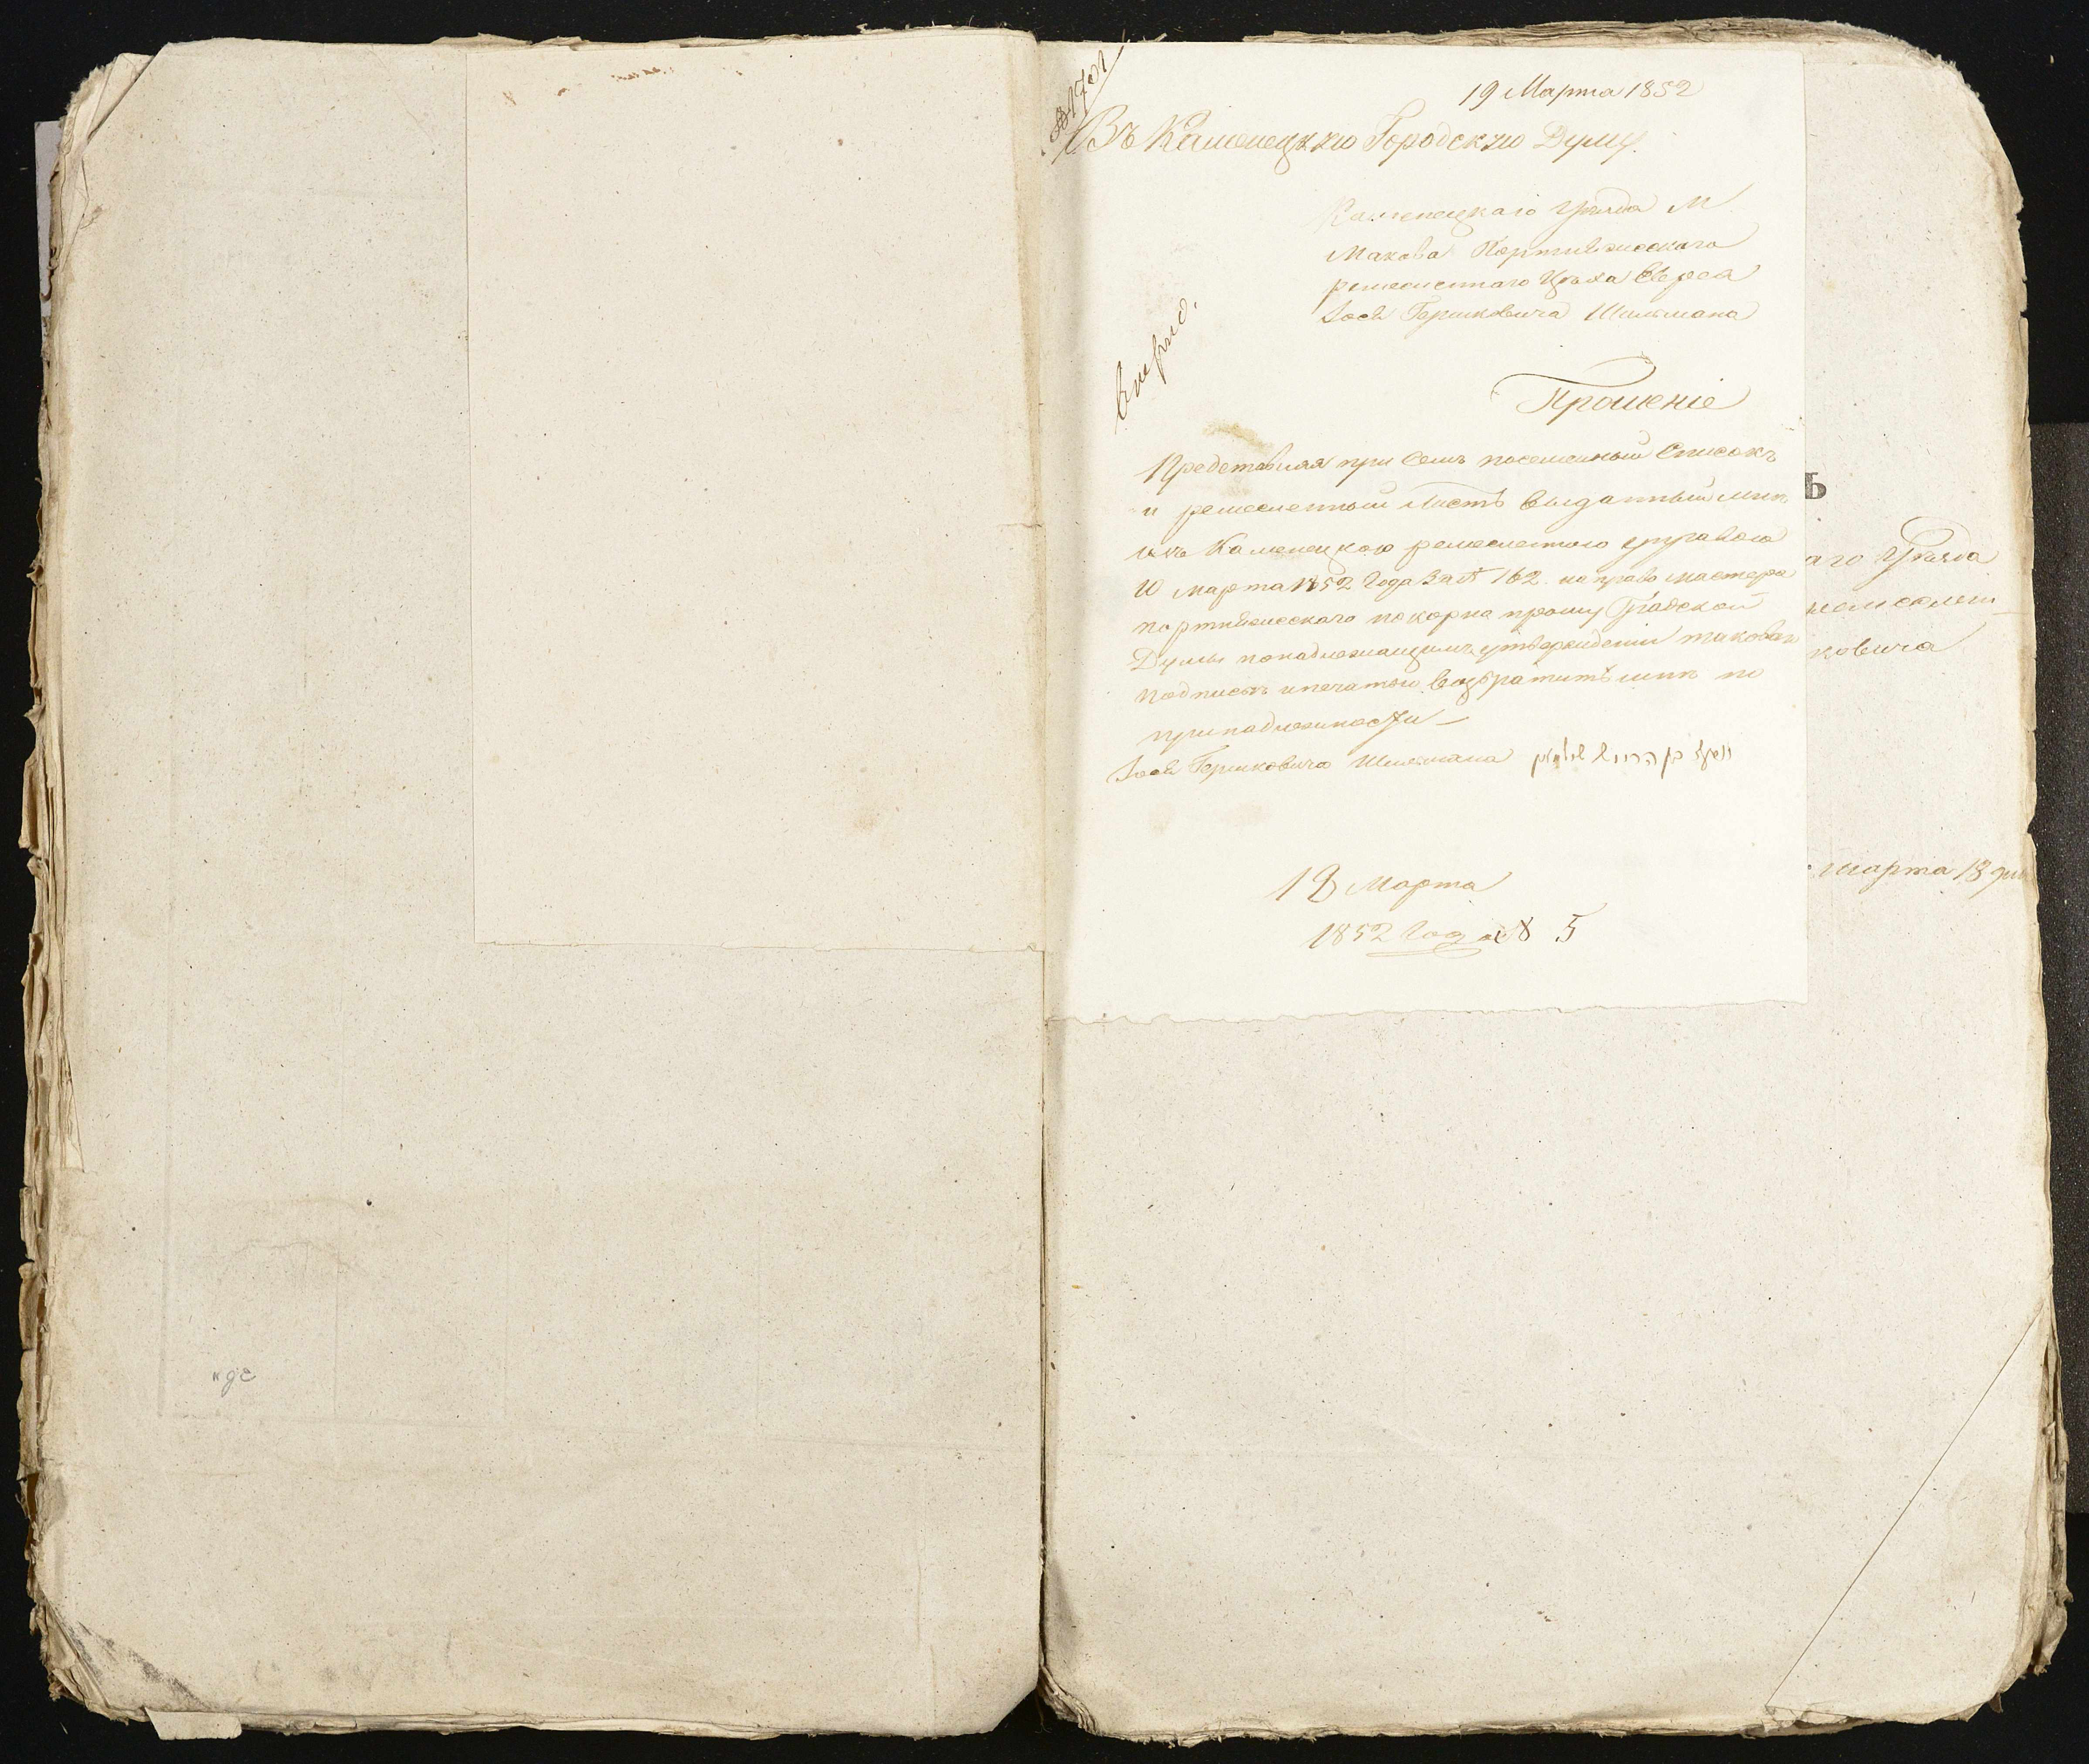 19 Марта 1852
Въ Каменецкую Городскую Думу.
Каменецкаго Уѣзда М
Макова Портняжескаго
ремесленнаго Цѣха Еврея
Іося Гершковича Шильмана
вѣрно.
Прошеніе
Представляя при семъ посемейный списокъ
и ремесленный листъ выданный мнѣ
изъ Каменецкою ремесленною управою
10 марта 1852 года за № 162 на право мастера
портняжескаго покорна прошу Градской
Думы понадлежащимъ утвержденіи таковаго
подписомъ и печатью возвратить мнѣ по
принадлежности
Іося Гершковича Шильмана
18 Марта
1852 года № 5
аго Уѣзда
ковича
марта 18 дня